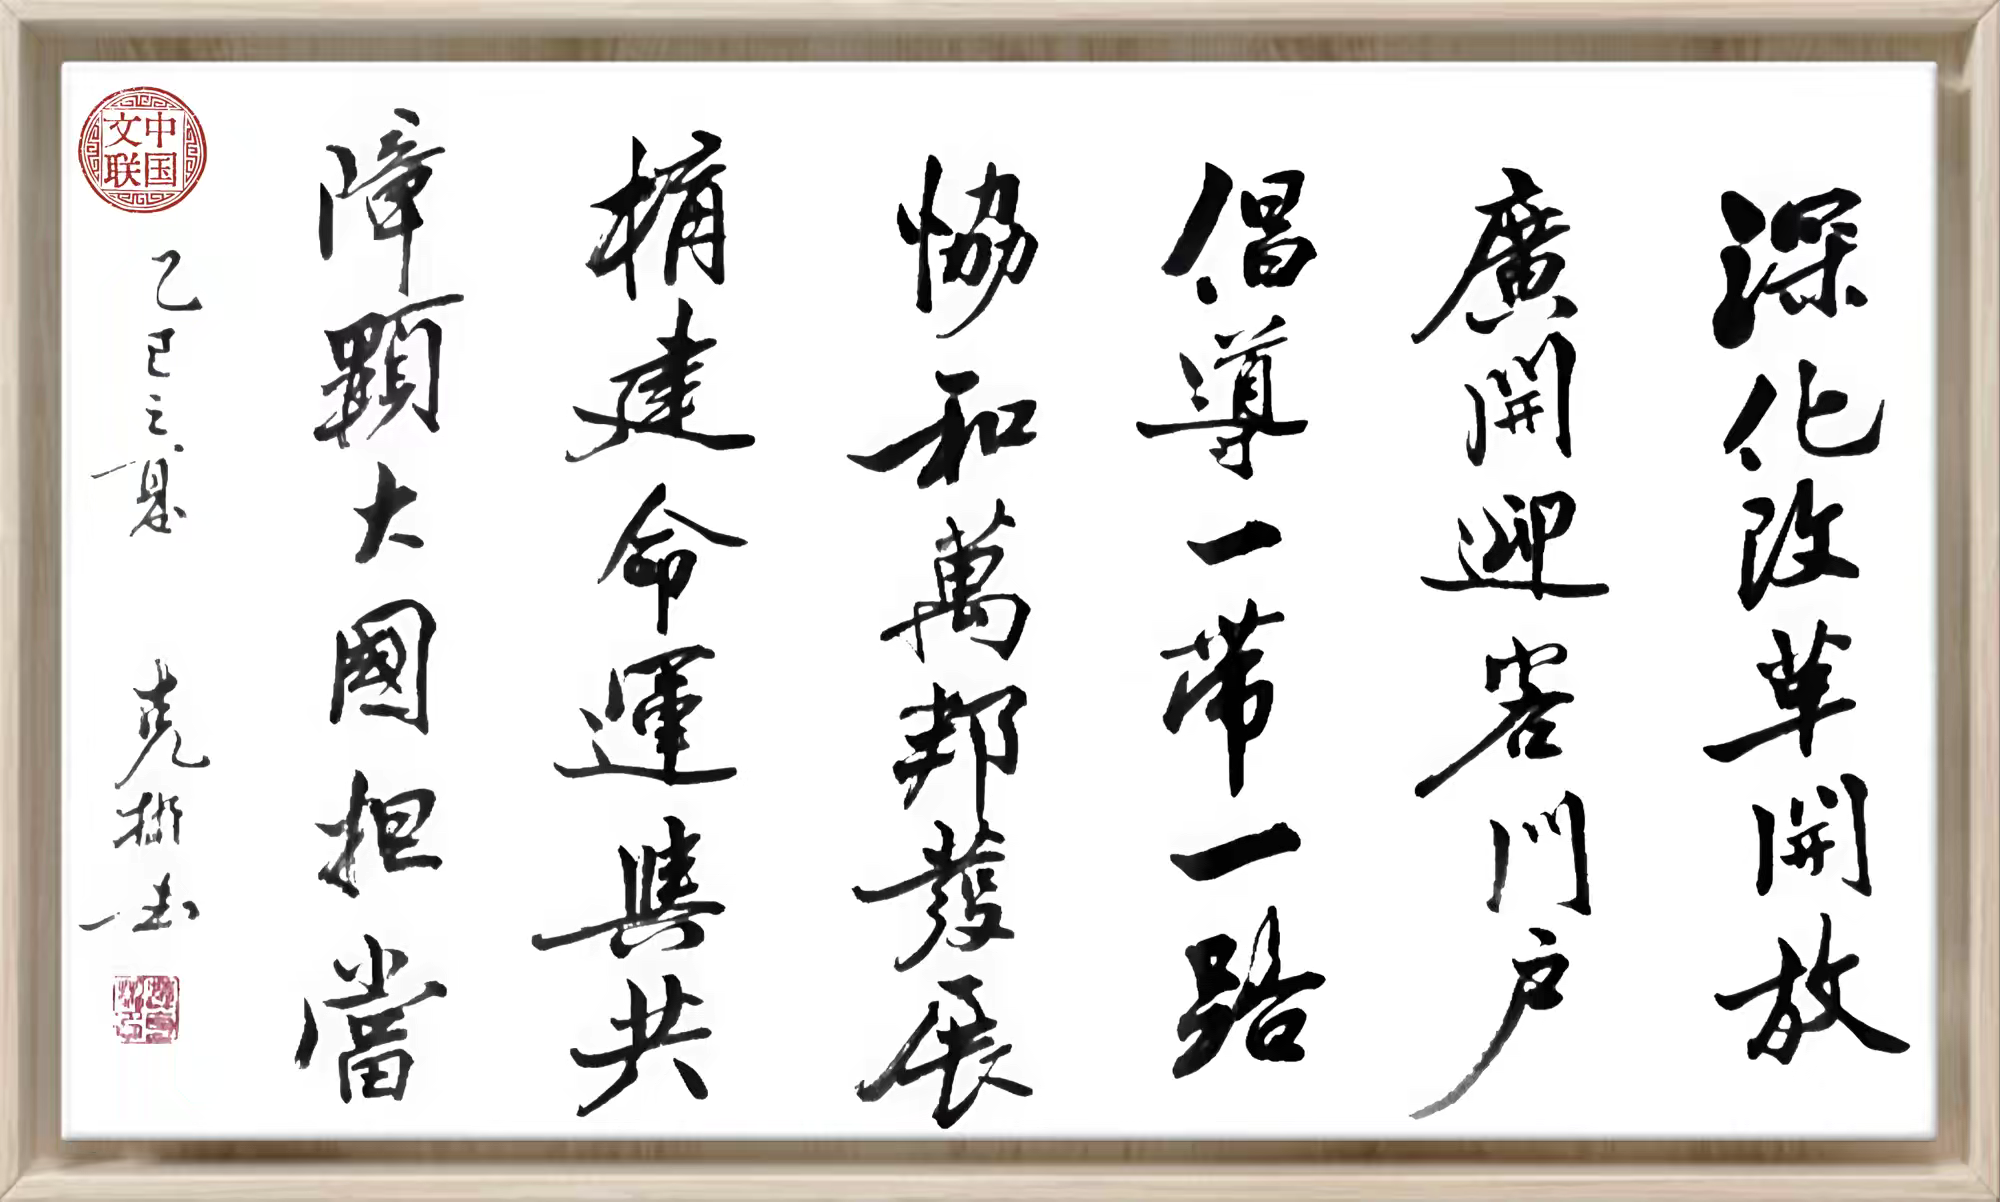 深化改革開放
廣開迎客門户
倡導一带一路
恊和萬邦發展
構建命運與共
障顯大國担當
乙巳之夏 克 书
中国文联